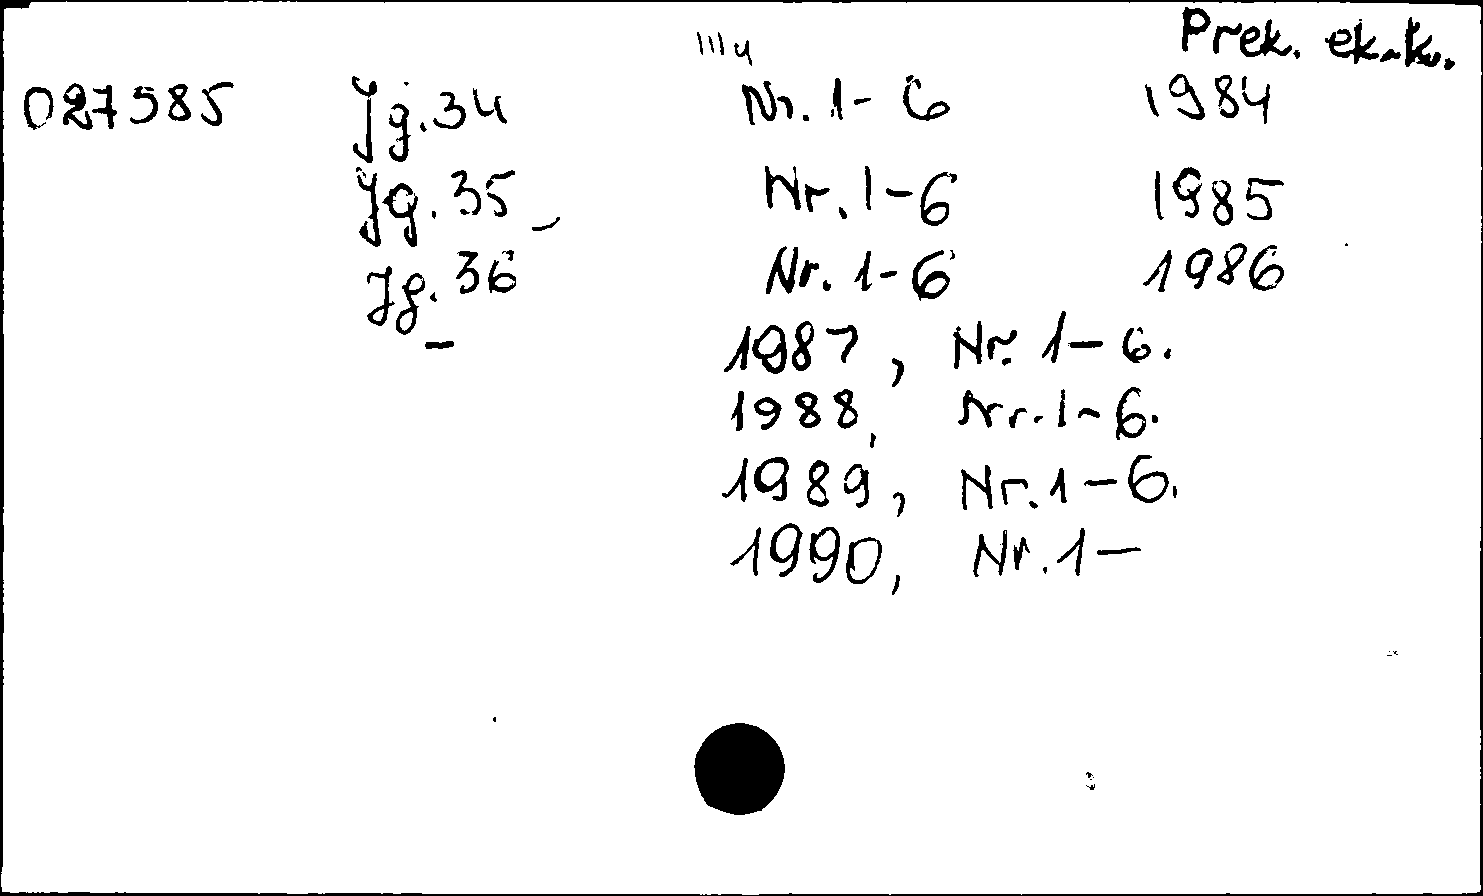 Prek. ek.-k.
027585 Jg. 34 Nr. 1-6 1984
Jg. 35 Nr. 1-6 1985
Jg. 36 Nr. 1-6 1986
1987, Nr. 1-6.
1988, Nr. 1-6.
1989, Nr. 1-6.
1990, Nr. 1-